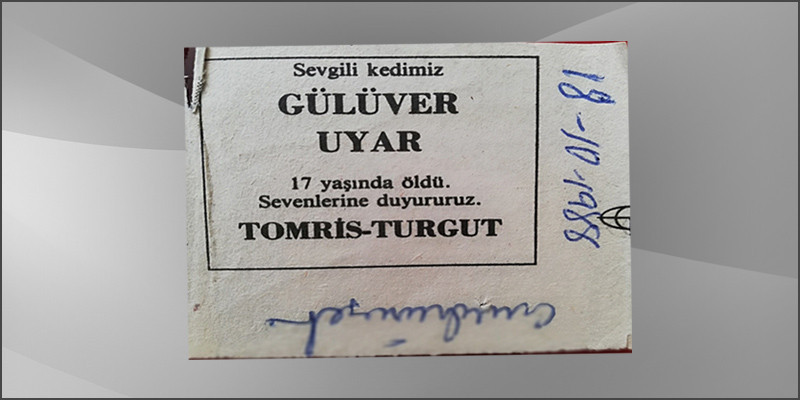 Sevgili kedimiz
GÜLÜVER
UYAR
17 yaşında öldü.
Sevenlerine duyururuz.
TOMRİS-TURGUT
Cumhuriyet